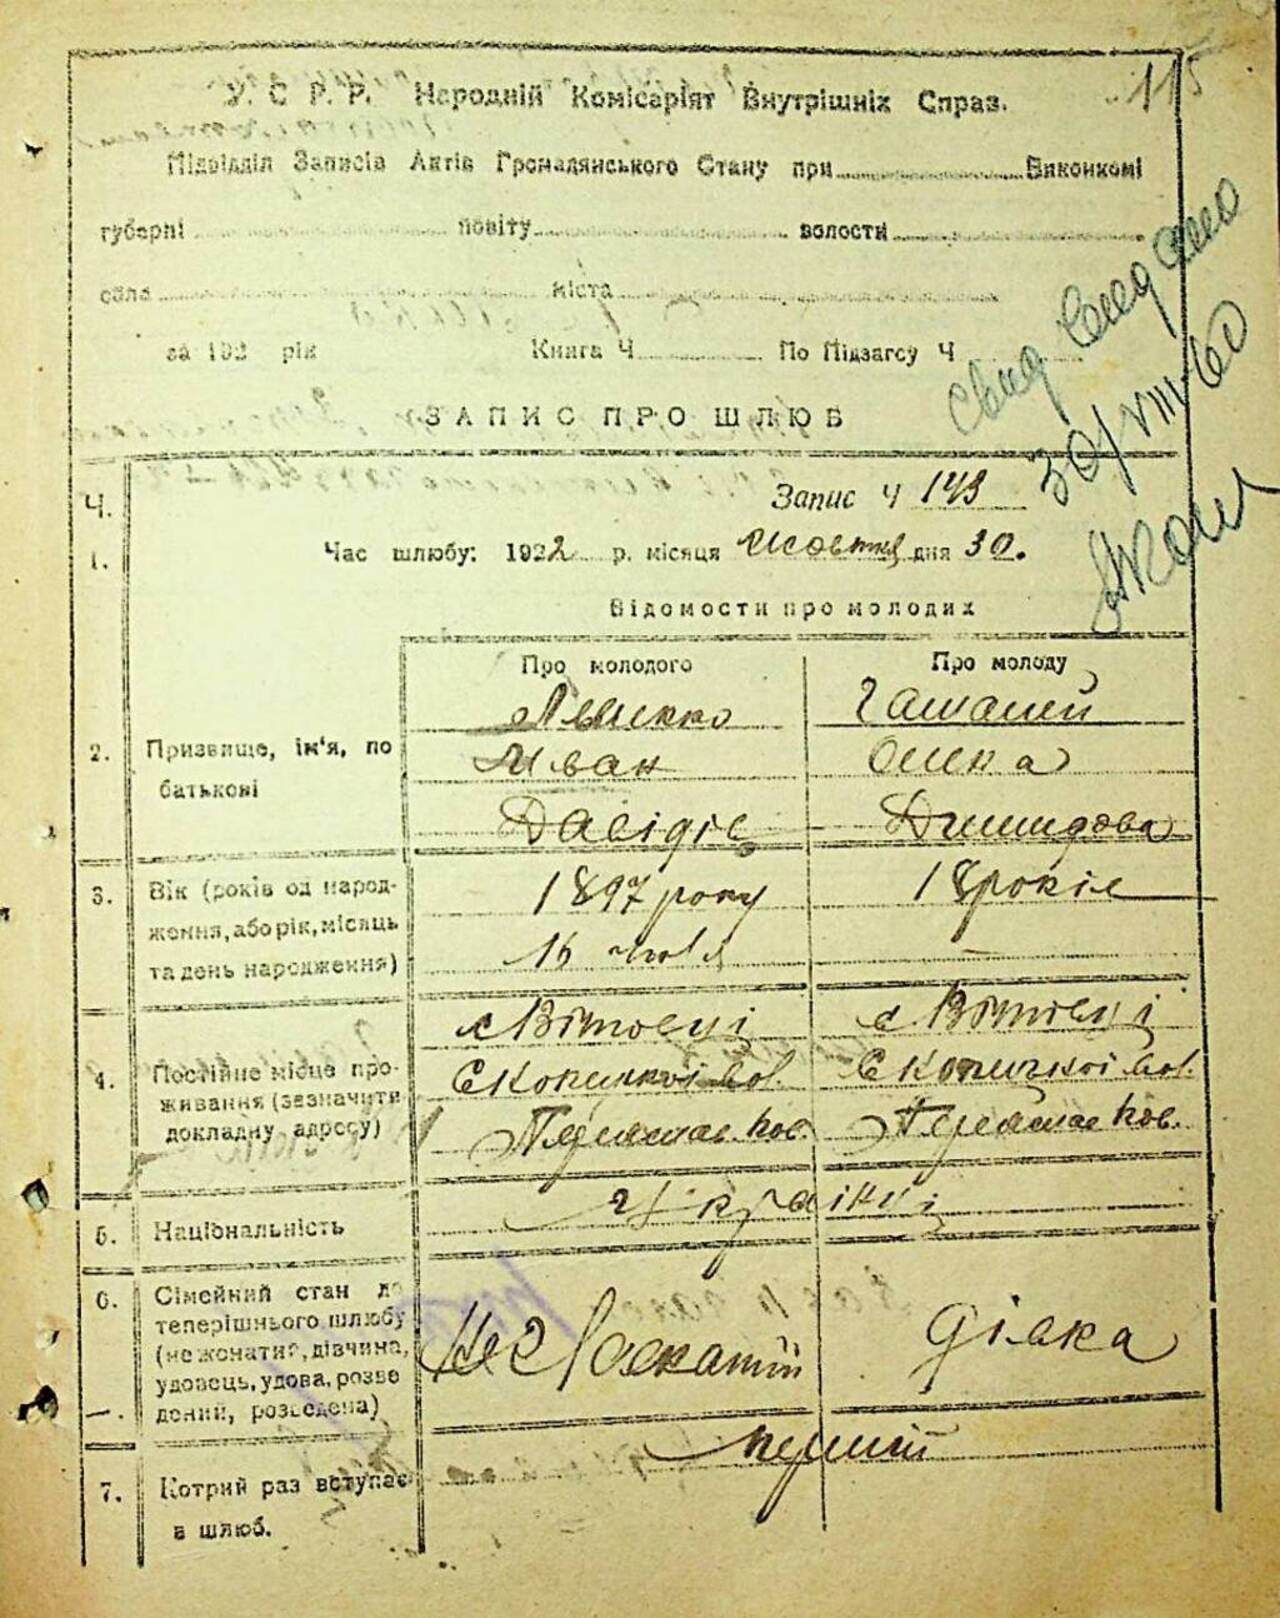 115
У. С. Р. Р. Народній Комісаріят Внутрішніх Справ.
Підвідділ Записів Актів Громадянського Стану при Виконкомі
губерні повіту волости
села міста
за 192 рік Книга Ч По Підзагсу Ч
30/VIII-60
ЗАПИС ПРО ШЛЮБ
Ч. Запис Ч 143
1. Час шлюбу: 1922 р. місяця Жовтня дня 30.
Відомости про молодих
Про молодого Про молоду
2. Призвище, ім'я, по батькові
Иван Олена
Давідів Демидова
3. Вік (років од народження, або рік, місяць та день народження)
1897 року 18 років
16 —
4. Постійне місце проживання (зазначити докладну адресу)
с Вітовці с Вітовці
Скопецкої вол. Скопецкої вол.
Переяслав пов. Переяслав пов.
5. Національність
Українці
6. Сімейний стан до теперішнього шлюбу (не жонатий, дівчина, удовець, удова, розведений, розведена)
Не жонатий дівка
7. Котрий раз вступає в шлюб.
перший